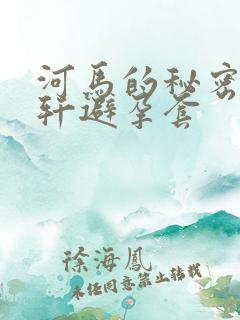 河马的秘密
轩避孕套
徐海鳳
未经同意禁止转载